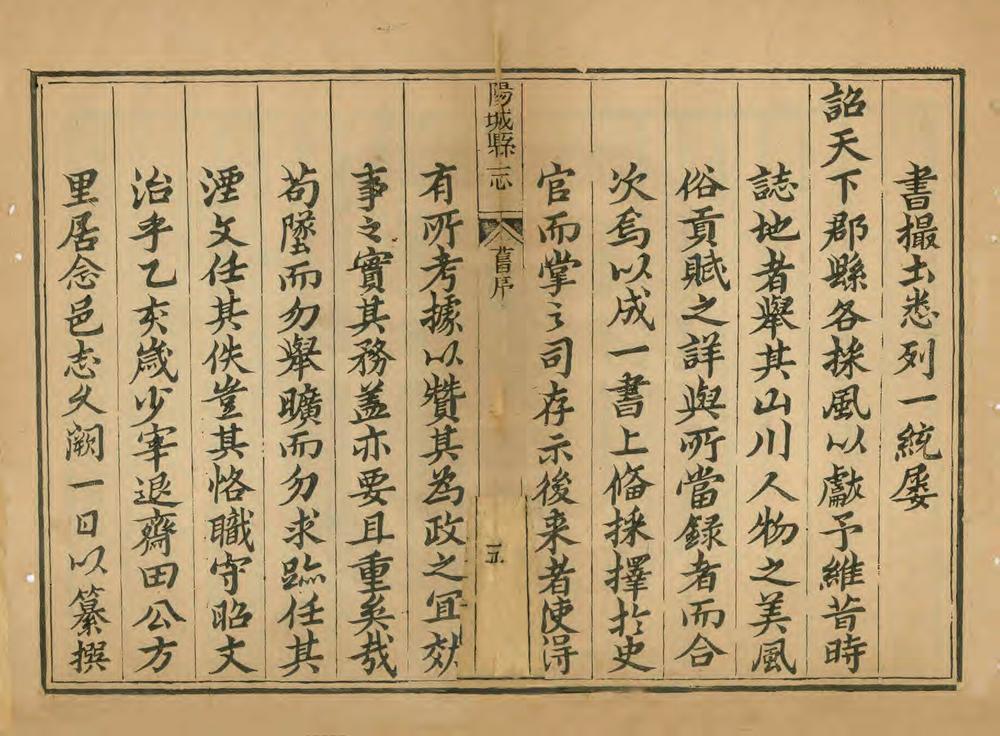 書撮土悉列一統屡
詔天下郡縣各採風以獻予維昔時
誌地者舉其山川人物之美風
俗貢賦之詳與所當録者而合
次焉以成一書上俻採擇於史
官而掌之司存示後来者使得
陽城縣志
舊序
五
有所考據以贊其為政之宜
事之實其務盖亦要且重矣㢤
苟墜而勿舉曠而勿求任其
湮文任其佚豈其恪職守昭文
治乎乙亥歲少宰退齋田公方
里居念邑志久闕一日以纂撰